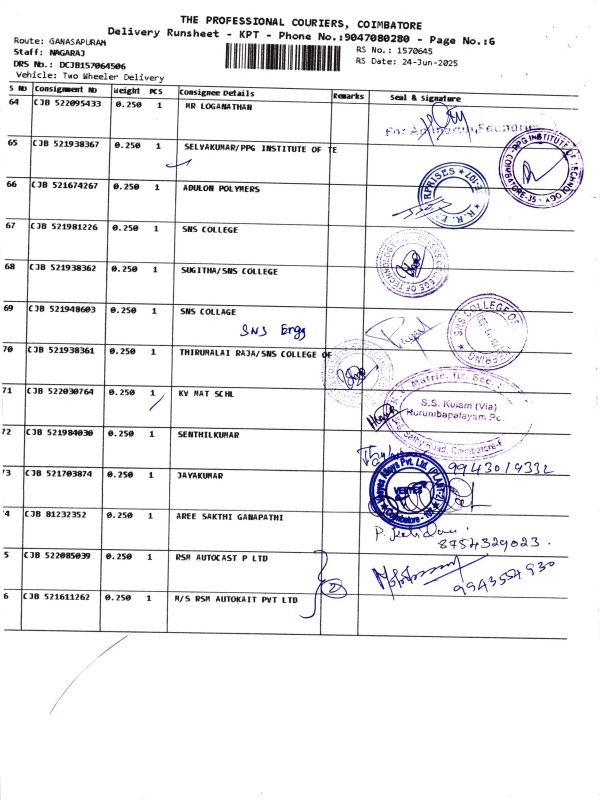 THE PROFESSIONAL COURIERS, COIMBATORE
Delivery Runsheet - KPT - Phone No.:9047080280 - Page No.:6
Route: GANASAPURAM
RS No.: 1570645
Staff: NAGARAJ
RS Date: 24-Jun-2025
DRS No.: DCJB157064506
Vehicle: Two Wheeler Delivery
S No Consignment No Weight PCS Consignee Details Remarks Seal & Signature
64 CJB 522095433 0.250 1 MR LOGANATHAN
65 CJB 521938367 0.250 1 SELVAKUMAR/PPG INSTITUTE OF TE
PPG INSTITUTE OF TECHNOLOGY COIMBATORE-35
66 CJB 521674267 0.250 1 ADULON POLYMERS
67 CJB 521981226 0.250 1 SNS COLLEGE
COLLEGE OF TECHNOLOGY
68 CJB 521938362 0.250 1 SUGITHA/SNS COLLEGE
69 CJB 521948603 0.250 1 SNS COLLAGE
SNS Engg
SNS COLLEGE OF
70 CJB 521938361 0.250 1 THIRUMALAI RAJA/SNS COLLEGE OF
71 CJB 522030764 0.250 1 KV MAT SCHL
Matric. Hr. Sec.
S.S. Kulam (Via)
Kurumbapalayam Po.
Sathy Road, Coimbatore
72 CJB 521984030 0.250 1 SENTHILKUMAR
9943019332
73 CJB 521703874 0.250 1 JAYAKUMAR
Alloys Pvt. Ltd. (PLANT-2)
Coimbatore
74 CJB 81232352 0.250 1 AREE SAKTHI GANAPATHI
8754329023
5 CJB 522085039 0.250 1 RSM AUTOCAST P LTD
9943554930
6 CJB 521611262 0.250 1 M/S RSM AUTOKAIT PVT LTD
2